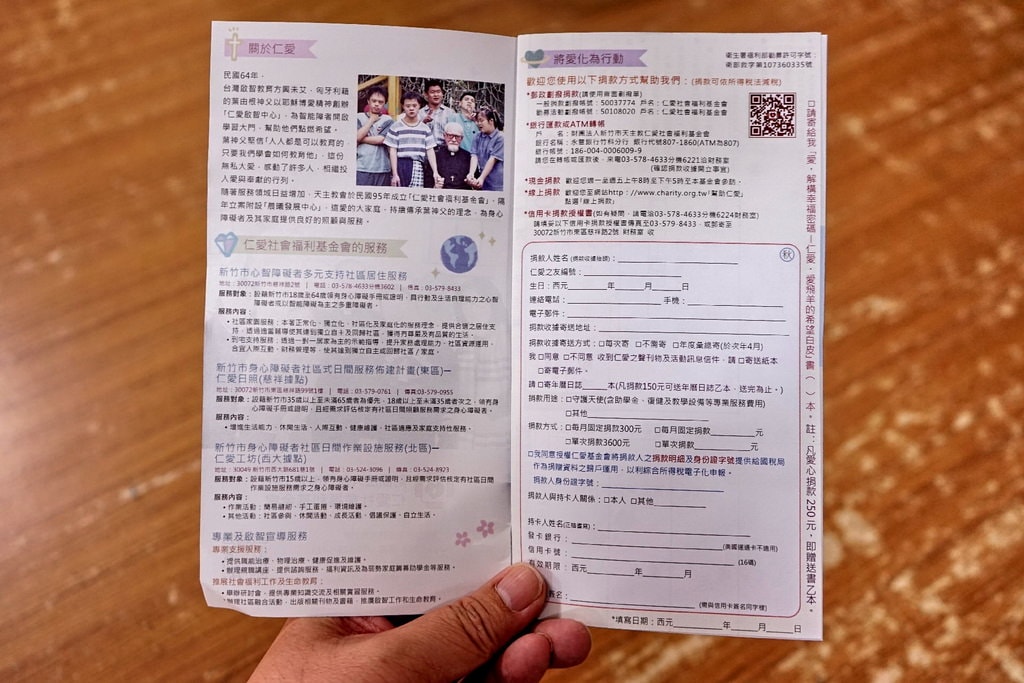 關於仁愛
民國64年，
台灣啟智教育方興未艾，匈牙利籍
的葉由根神父以耶穌博愛精神創辦
「仁愛啟智中心」，為智能障者開啟
學習大門，幫助他們點燃希望。
葉神父堅信「人人都是可以教育的，
只要我們學會如何教育他」，這份
無私大愛，感動了許多人，相繼投
入愛與奉獻的行列。
隨著服務領域日益增加，天主教會於民國95年成立「仁愛社會福利基金會」，隔
年立案附設「晨曦發展中心」，這愛的大家庭，持續傳承葉神父的理念，為身心
障礙者及其家庭提供良好的照顧與服務。
仁愛社會福利基金會的服務
新竹市心智障礙者多元支持社區居住服務
地址：30072新竹市慈祥路2號 | 電話：03-578-4633分機3602 | 傳真：03-579-8433
服務對象：設籍新竹市18歲至64歲領有身心障礙手冊或證明，具行動及生活自理能力之心智
障礙者或以智能障礙為主之多重障礙者。
服務內容：
•社區家園服務：本著正常化、獨立化、社區化及家庭化的服務理念，提供合適之居住支
持，透過適當輔導使其達到獨立自主及回歸社區，獲得有尊嚴及有品質的生活。
•到宅支持服務：透過一對一居家為主的示範指導，提升家務處理能力、社區資源運用、
合宜人際互動、財務管理等，使其達到獨立自主或回歸社區/家庭。
新竹市身心障礙者社區式日間服務佈建計畫(東區)—
仁愛日照(慈祥據點)
地址：30072新竹市東區慈祥路99號1樓 | 電話：03-579-0761 | 傳真:03-579-0955
服務對象：設籍新竹市35歲以上至未滿65歲者為優先，18歲以上至未滿35歲者次之，領有身
心障礙手冊或證明，且經需求評估核定有社區日間照顧服務需求之身心障礙者。
服務內容：
•增進生活能力、休閒生活、人際互動、健康維護、社區適應及家庭支持性服務。
新竹市身心障礙者社區日間作業設施服務(北區)—
仁愛工坊(西大據點)
地址：30049 新竹市西大路681巷1號 | 電話：03-524-3096 | 傳真：03-524-8923
服務對象：設籍新竹市15歲以上，領有身心障礙手冊或證明，且經需求評估核定有社區日間
作業設施服務需求之身心障礙者。
服務內容：
•作業活動：簡易縫紉、手工蛋捲、環境維護。
•其他活動：社區參與、休閒活動、成長活動、倡議保護、自立生活。
專業及啟智宣導服務
專業支援服務：
•提供職能治療、物理治療、健康促進及維護。
•辦理親職講座，提供諮詢服務，福利資訊及為弱勢家庭籌募助學金等服務。
推展社會福利工作及生命教育：
•舉辦研討會，提供專業知識交流及相關實習服務。
辦理社區融合活動，出版相關刊物及書籍，推廣啟智工作和生命教育。
將愛化為行動
衛生署福利部勸募許可字號：
衛部救字第107360335號
歡迎您使用以下捐款方式幫助我們：(捐款可依所得稅法減稅)
*郵政劃撥捐款(請使用背面劃撥單)
一般捐款劃撥帳號：50037774 戶名：仁愛社會福利基金會
勸募活動劃撥帳號：50108020 戶名：仁愛社會福利基金會
*銀行匯款或ATM轉帳
戶 名：財團法人新竹市天主教仁愛社會福利基金會
銀行名稱：永豐銀行竹科分行 銀行代號807-1860(ATM為807)
銀行帳號：186-004-0006009-9
請您在轉帳或匯款後，來電03-578-4633分機6221洽財務室
(確認捐款收據開立事宜)
*現金捐款 歡迎您週一至週五上午8時至下午5時至本基金會參訪。
*線上捐款 歡迎您至網站http://www.charity.org.tw「幫助仁愛」
點選「線上捐款」
*信用卡捐款授權書(如有疑問，請電洽03-578-4633分機6224財務室)
請填妥以下信用卡捐款授權書傳真至03-579-8433，或郵寄至
30072新竹市東區慈祥路2號 財務室 收
秋
捐款人姓名(捐款收據抬頭)：
仁愛之友編號：
生日：西元 年 月 日
連絡電話： 手機：
電子郵件：
捐款收據寄送地址：
捐款收據寄送方式：□每次寄 □不需寄 □年度彙總寄(於次年4月)
我□同意□不同意 收到仁愛之聲刊物及活動訊息信件，請□寄送紙本
□寄電子郵件。
請□寄年曆日誌 本(凡捐款150元可送年曆日誌乙本，送完為止。)
捐款用途：□守護天使(含助學金、復健及教學設備等專業服務費用)
□其他
捐款方式：□每月固定捐款300元 □每月固定捐款 元
□單次捐款3600元 □單次捐款 元
□我同意授權仁愛基金會將捐款人之捐款明細及身份證字號提供給國稅局
作為捐贈資料之歸戶運用，以利綜合所得稅電子化申報。
捐款人身份證字號：
捐款人與持卡人關係：□本人 □其他
持卡人姓名(正楷書寫)：
發卡銀行： (美國運通卡不適用)
信用卡號： (16碼)
有效期限：西元 年 月
簽名： (需與信用卡簽名同字樣)
*填寫日期：西元 年 月 日
□請寄給我「愛，解構幸福密碼－仁愛，愛飛羊的希望白皮」書（ ）本，註：凡愛心捐款250元，即贈送書乙本。